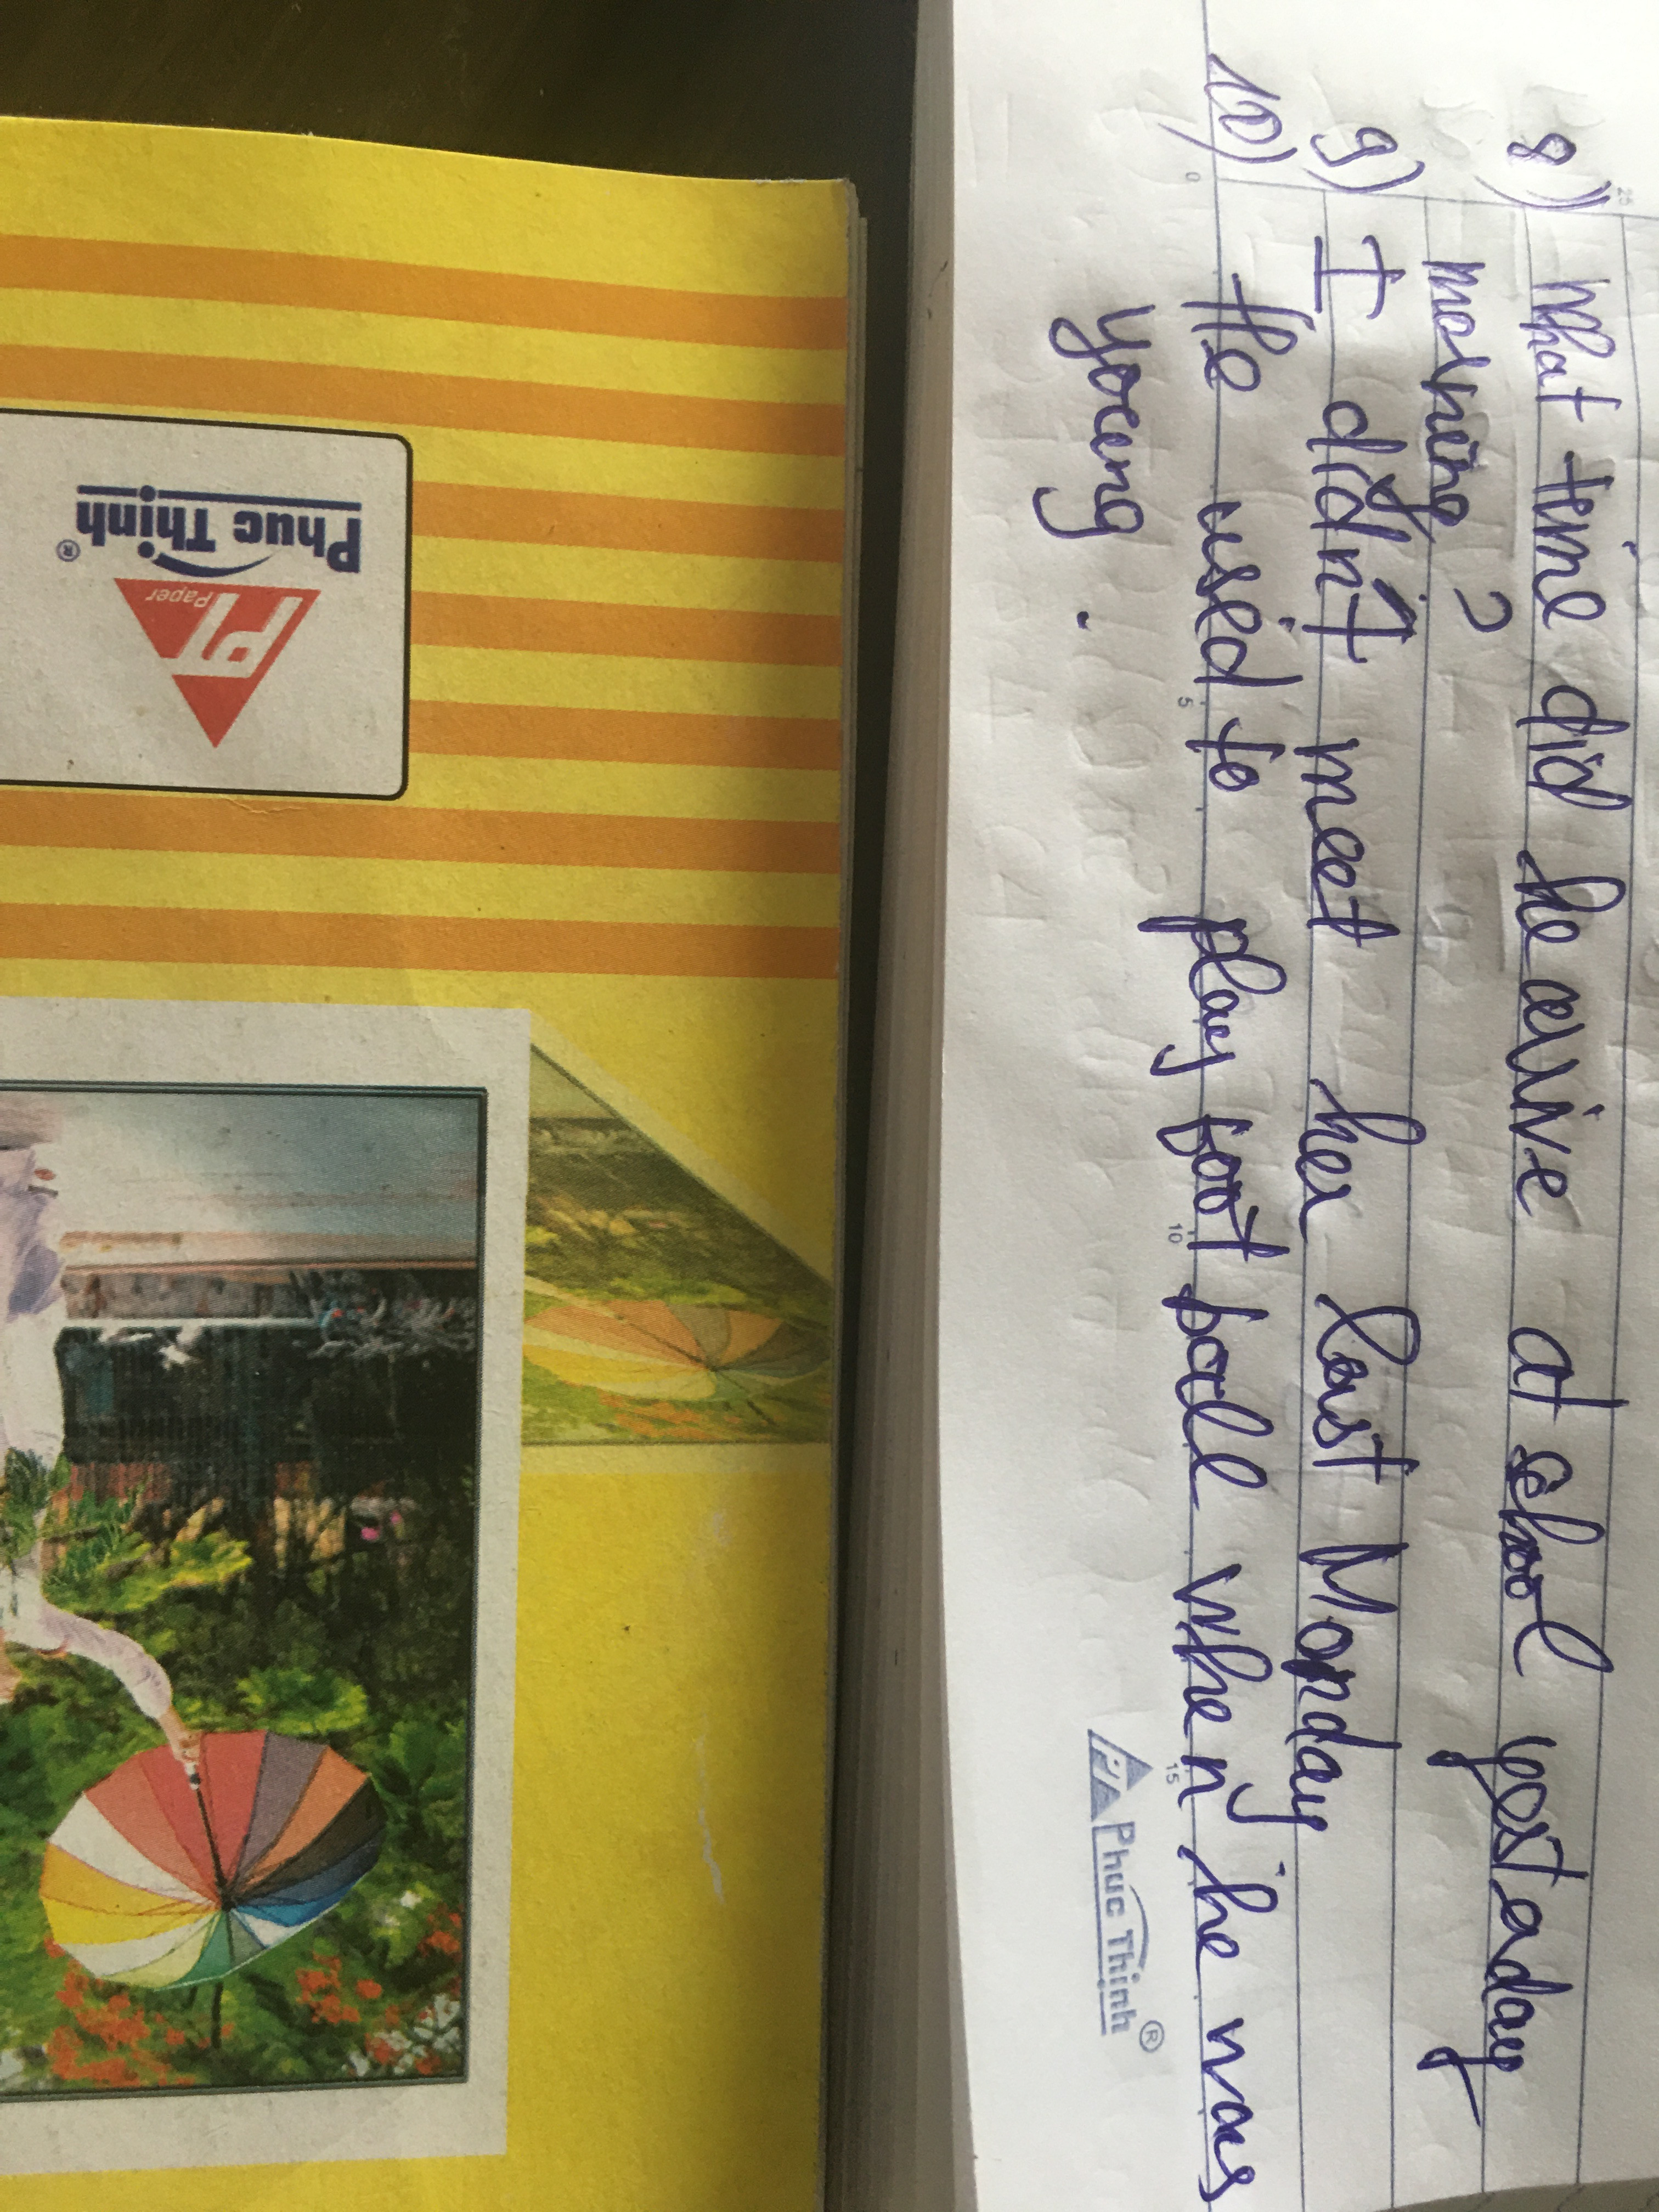 8) What time did he arrive at school yesterday
morning?
9) I didn't meet her last Monday
10) He used to play football when he was
young.
Phuc Thinh®
Phuc Thinh®
PT
Paper
0
5
10
15
25